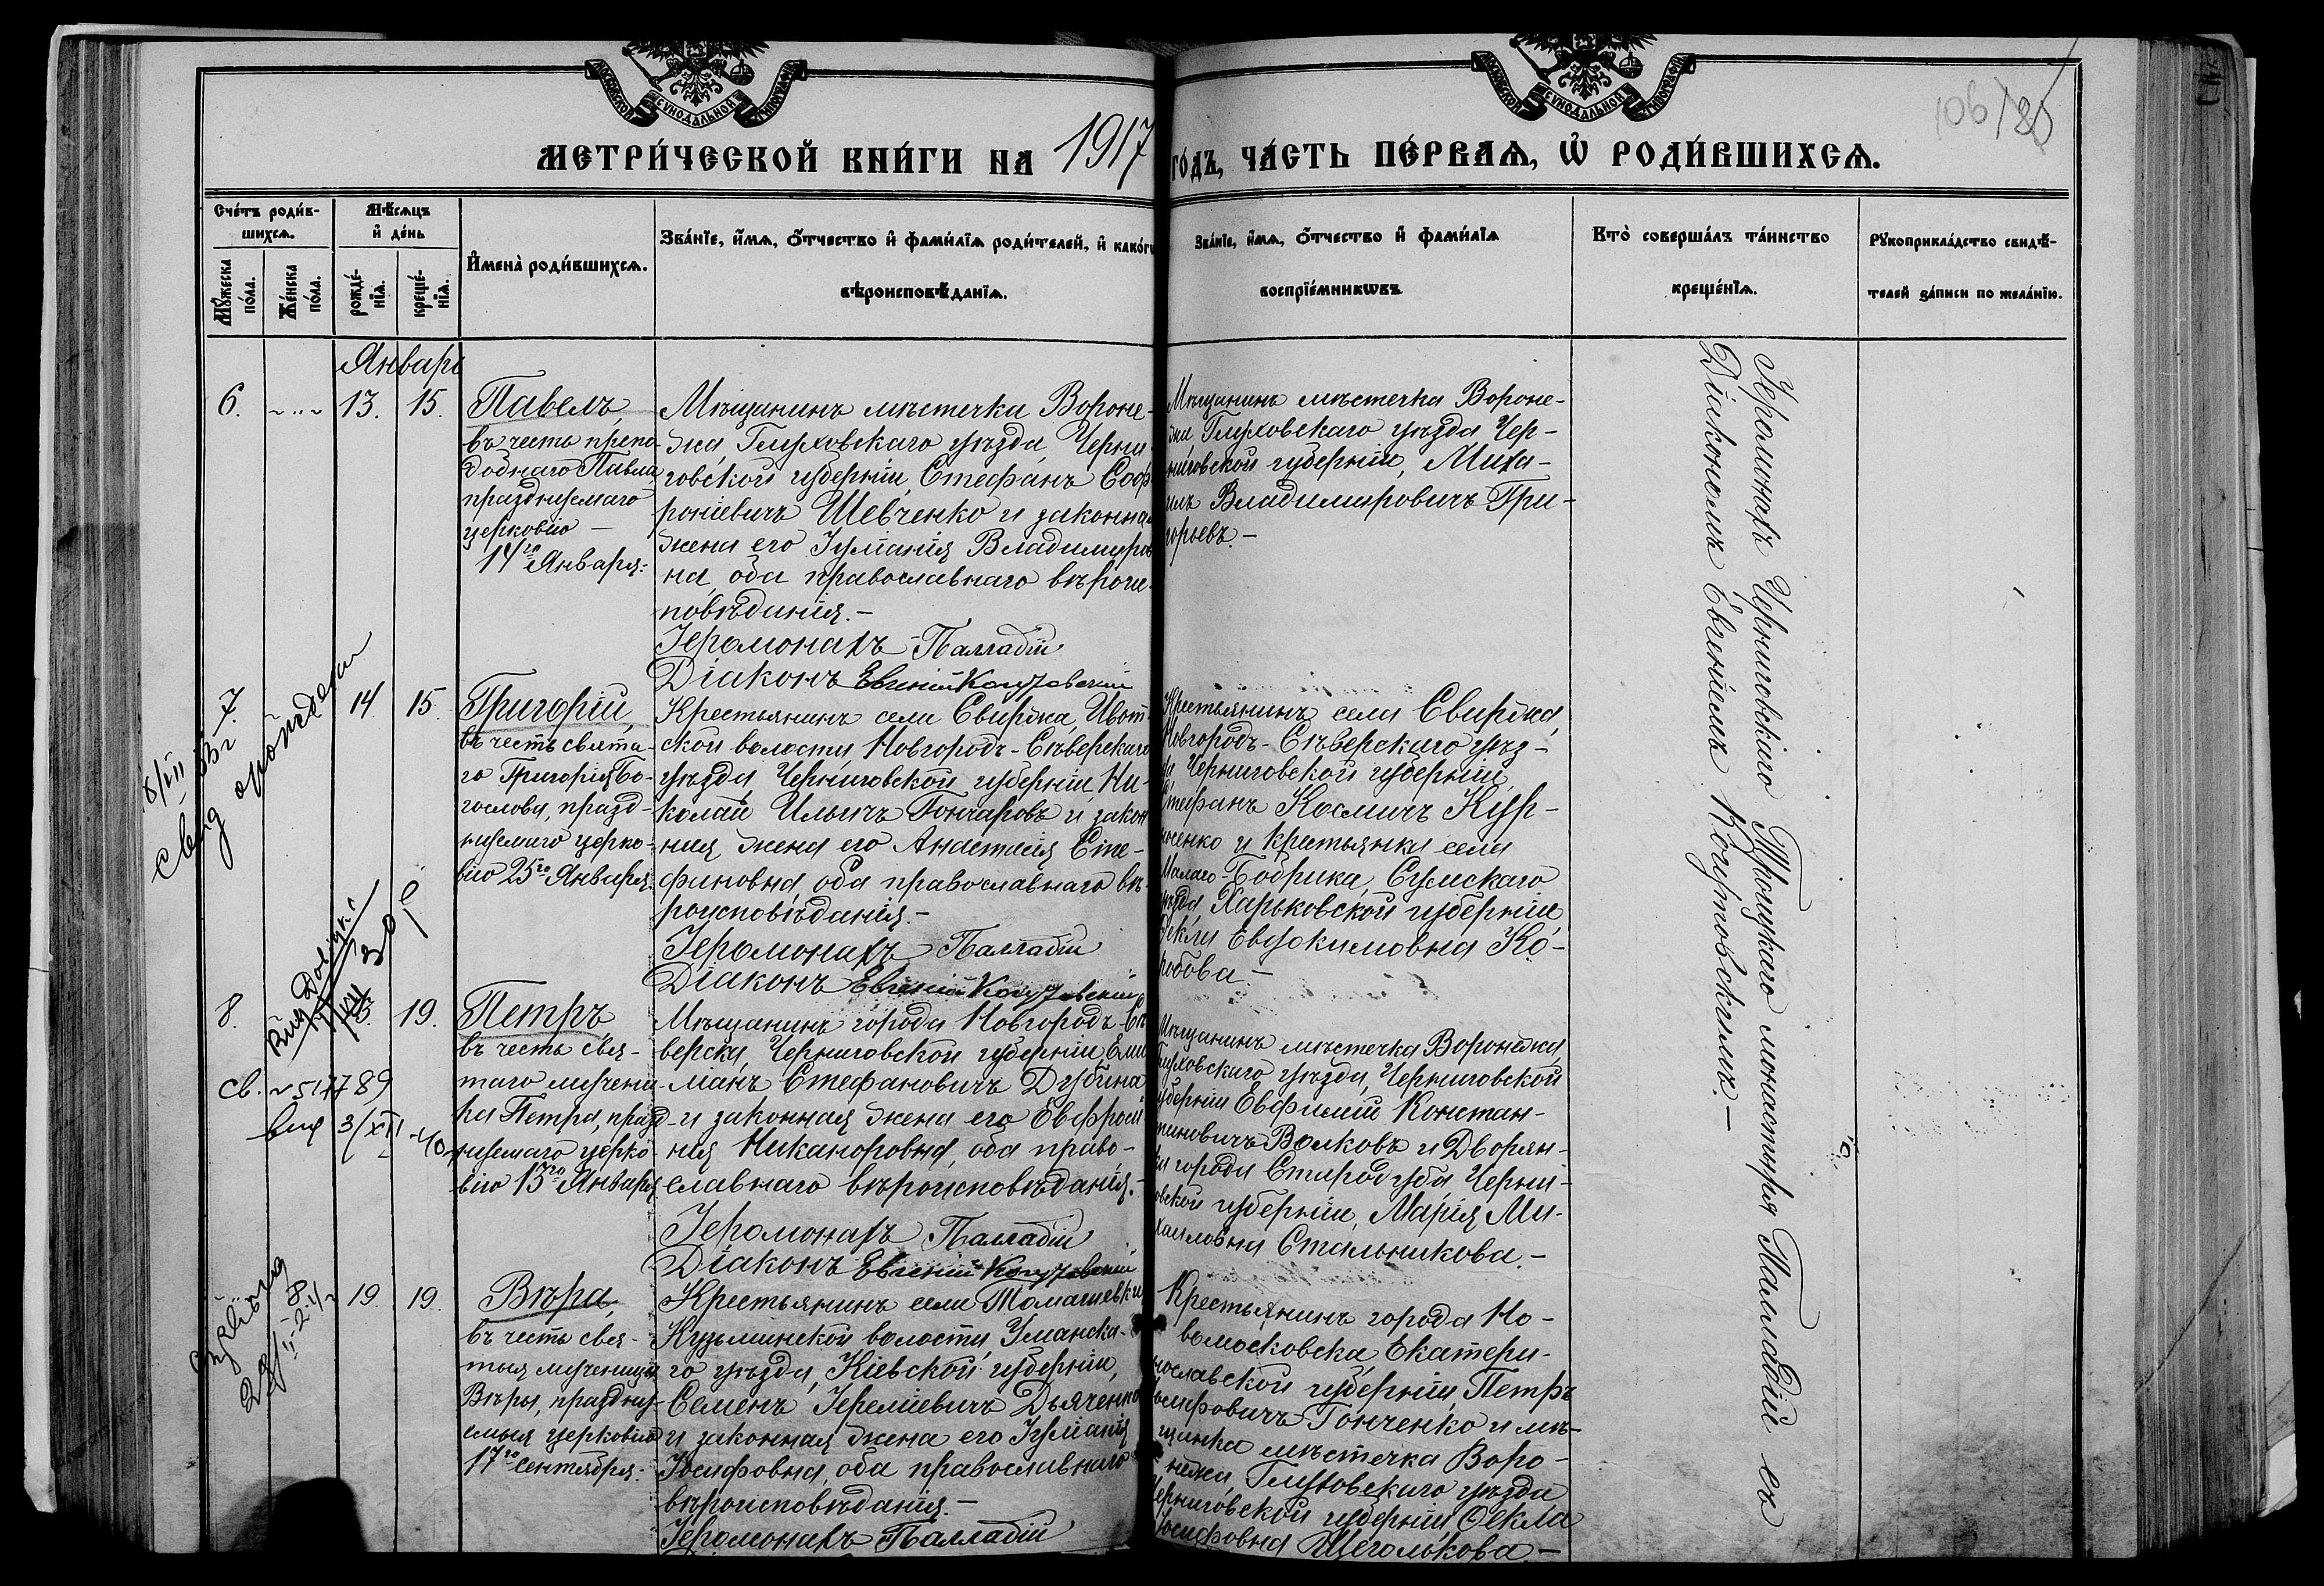 МОСКОВСКОЙ СѴНОДАЛЬНОЙ ТИПОГРАФІИ
МОСКОВСКОЙ СѴНОДАЛЬНОЙ ТИПОГРАФІИ
106
МЕТРИ́ЧЕСКОЙ КНИ́ГИ НА 1917 ГО́ДЪ, ЧА́СТЬ ПЕ́РВАѦ, Ѡ҆ РОДИ́ВШИХСѦ.
Сче́тъ роди́в-
шихсѧ.
Мѣ́сѧцъ
и҆ де́нь
Мꙋ́жеска
по́ла.
Же́нска
по́ла.
рожде́-
нїѧ.
креще́-
нїѧ.
И҆мена̀ роди́вшихсѧ.
Зва́нїе, и҆́мѧ, ѻ҆́тчество и҆ фами́лїѧ роди́телей, и҆ како́гѡ
вѣроисповѣ́данїѧ.
Зва́нїе, и҆́мѧ, ѻ҆́тчество и҆ фами́лїѧ
воспрїе́мникѡвъ
Кто̀ соверша́лъ та́инство
креще́нїѧ.
Рꙋкоприкла́дство свидѣ́-
телей за́писи по жела́нїю.
Январь
6. 13. 15.
Павелъ,
въ честь препо-
добнаго Павла
празднуемаго
церковію —
14го Января.
Мѣщанинъ мѣстечка Вороне-
жа, Глуховскаго уѣзда, Черни-
говской губерніи, Стефанъ Соф-
роніевичъ Шевченко и законная
жена его Іуліанія Владимиров-
на, оба православнаго вѣроис-
повѣданія.—
Іеромонахъ Палладій
Діаконъ Евгеній
Мѣщанинъ мѣстечка Вороне-
жа Глуховскаго уѣзда Чер-
ниговской губерніи, Миха-
илъ Владимировичъ Гри-
горьевъ.—
Іеромонахъ Черниговскаго Троицкаго монастыря Палладій съ
Діакономъ Евгеніемъ
7. 14. 15.
Григорій,
въ честь свята-
го Григорія Бо-
гослова, празд-
нуемаго церко-
вію 25го Января.
Крестьянинъ села Свиржа, Ивот-
ской волости, Новгородъ-Сѣверскаго
уѣзда, Черниговской губерніи, Ни-
колай Ильичъ Гончаровъ и закон-
ная жена его Анастасія Сте-
фановна, оба православнаго вѣ-
роисповѣданія.—
Іеромонахъ Палладій
Діаконъ Евгеній
Крестьянинъ села Свиржа,
Новгородъ-Сѣверскаго уѣз-
да Черниговской губерніи,
Стефанъ Космичъ Кур-
ченко и крестьянка села
Малаго Бобрика, Сумскаго
уѣзда Харьковской губерніи
Ѳекла Евдокимовна Ко-
робова—
8. 19.
Петръ,
въ честь свя-
таго мучени-
ка Петра, празд-
нуемаго церко-
вію 13го Января
Мѣщанинъ города Новгородъ-Сѣ-
верска, Черниговской губерніи, Еми-
ліанъ Стефановичъ Дубина
и законная жена его Евфроси-
нія Никаноровна, оба право-
славнаго вѣроисповѣданія.—
Іеромонахъ Палладій
Діаконъ Евгеній
Мѣщанинъ мѣстечка Воронежа,
Глуховскаго уѣзда, Черниговской
губерніи Евфимій Констан-
тиновичъ Волковъ и Дворян-
ка города Стародуба Черни-
говской губерніи, Марія Ми-
хаиловна Стальникова.—
19. 19.
Вѣра,
въ честь свя-
тыя мученицы
Вѣры, праздну-
емыя церковію
17го Сентября.
Крестьянинъ села Томашевки
Кузьминской волости, Уманска-
го уѣзда, Кіевской губерніи,
Семенъ Іереміевичъ Дьяченко
и законная жена его Іуліанія
Іосифовна, оба православнаго
вѣроисповѣданія.—
Іеромонахъ Палладій
Крестьянинъ города Но-
вомосковска, Екатери-
нославской губерніи, Петръ
Іосифовичъ Гонченко и мѣ-
щанка мѣстечка Воро-
нежа, Глуховскаго уѣзда
Черниговской губерніи, Ѳекла
Іосифовна Щеголькова—